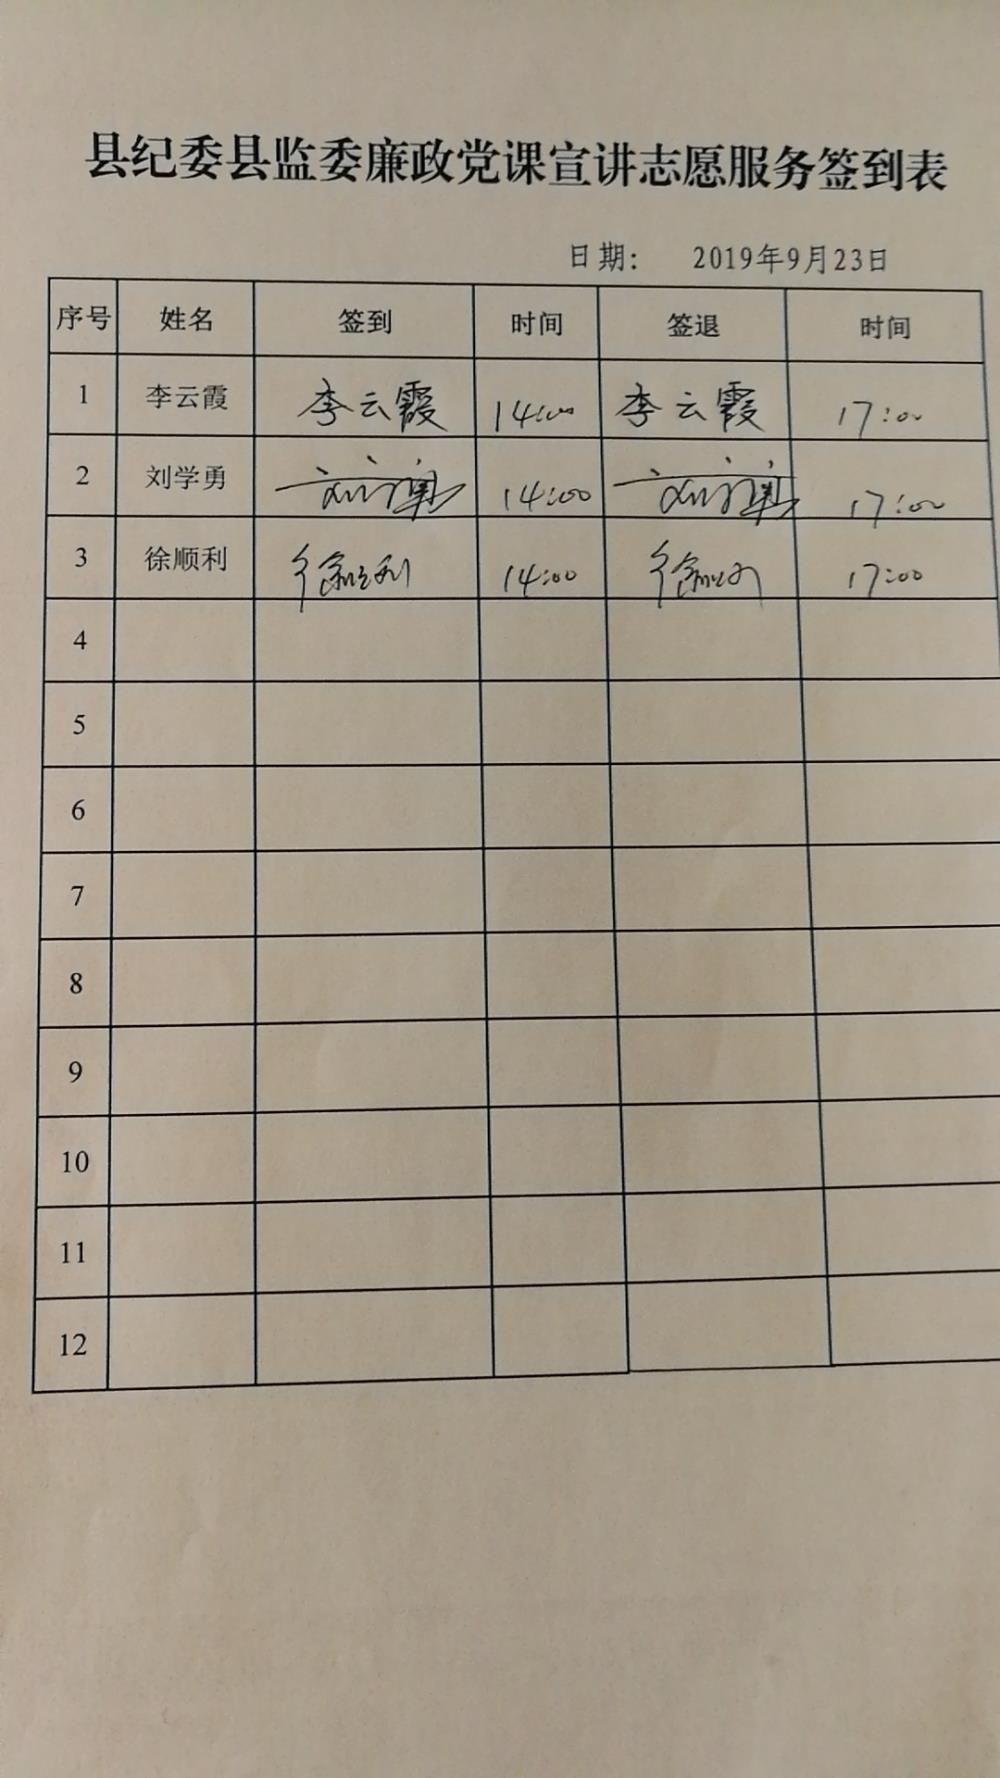 县纪委县监委廉政党课宣讲志愿服务签到表
日期: 2019年9月23日
序号 姓名 签到 时间 签退 时间
1 李云霞 李云霞 14:00 李云霞 17:00
2 刘学勇 刘学勇 14:00 刘学勇 17:00
3 徐顺利 徐顺利 14:00 徐顺利 17:00
4
5
6
7
8
9
10
11
12